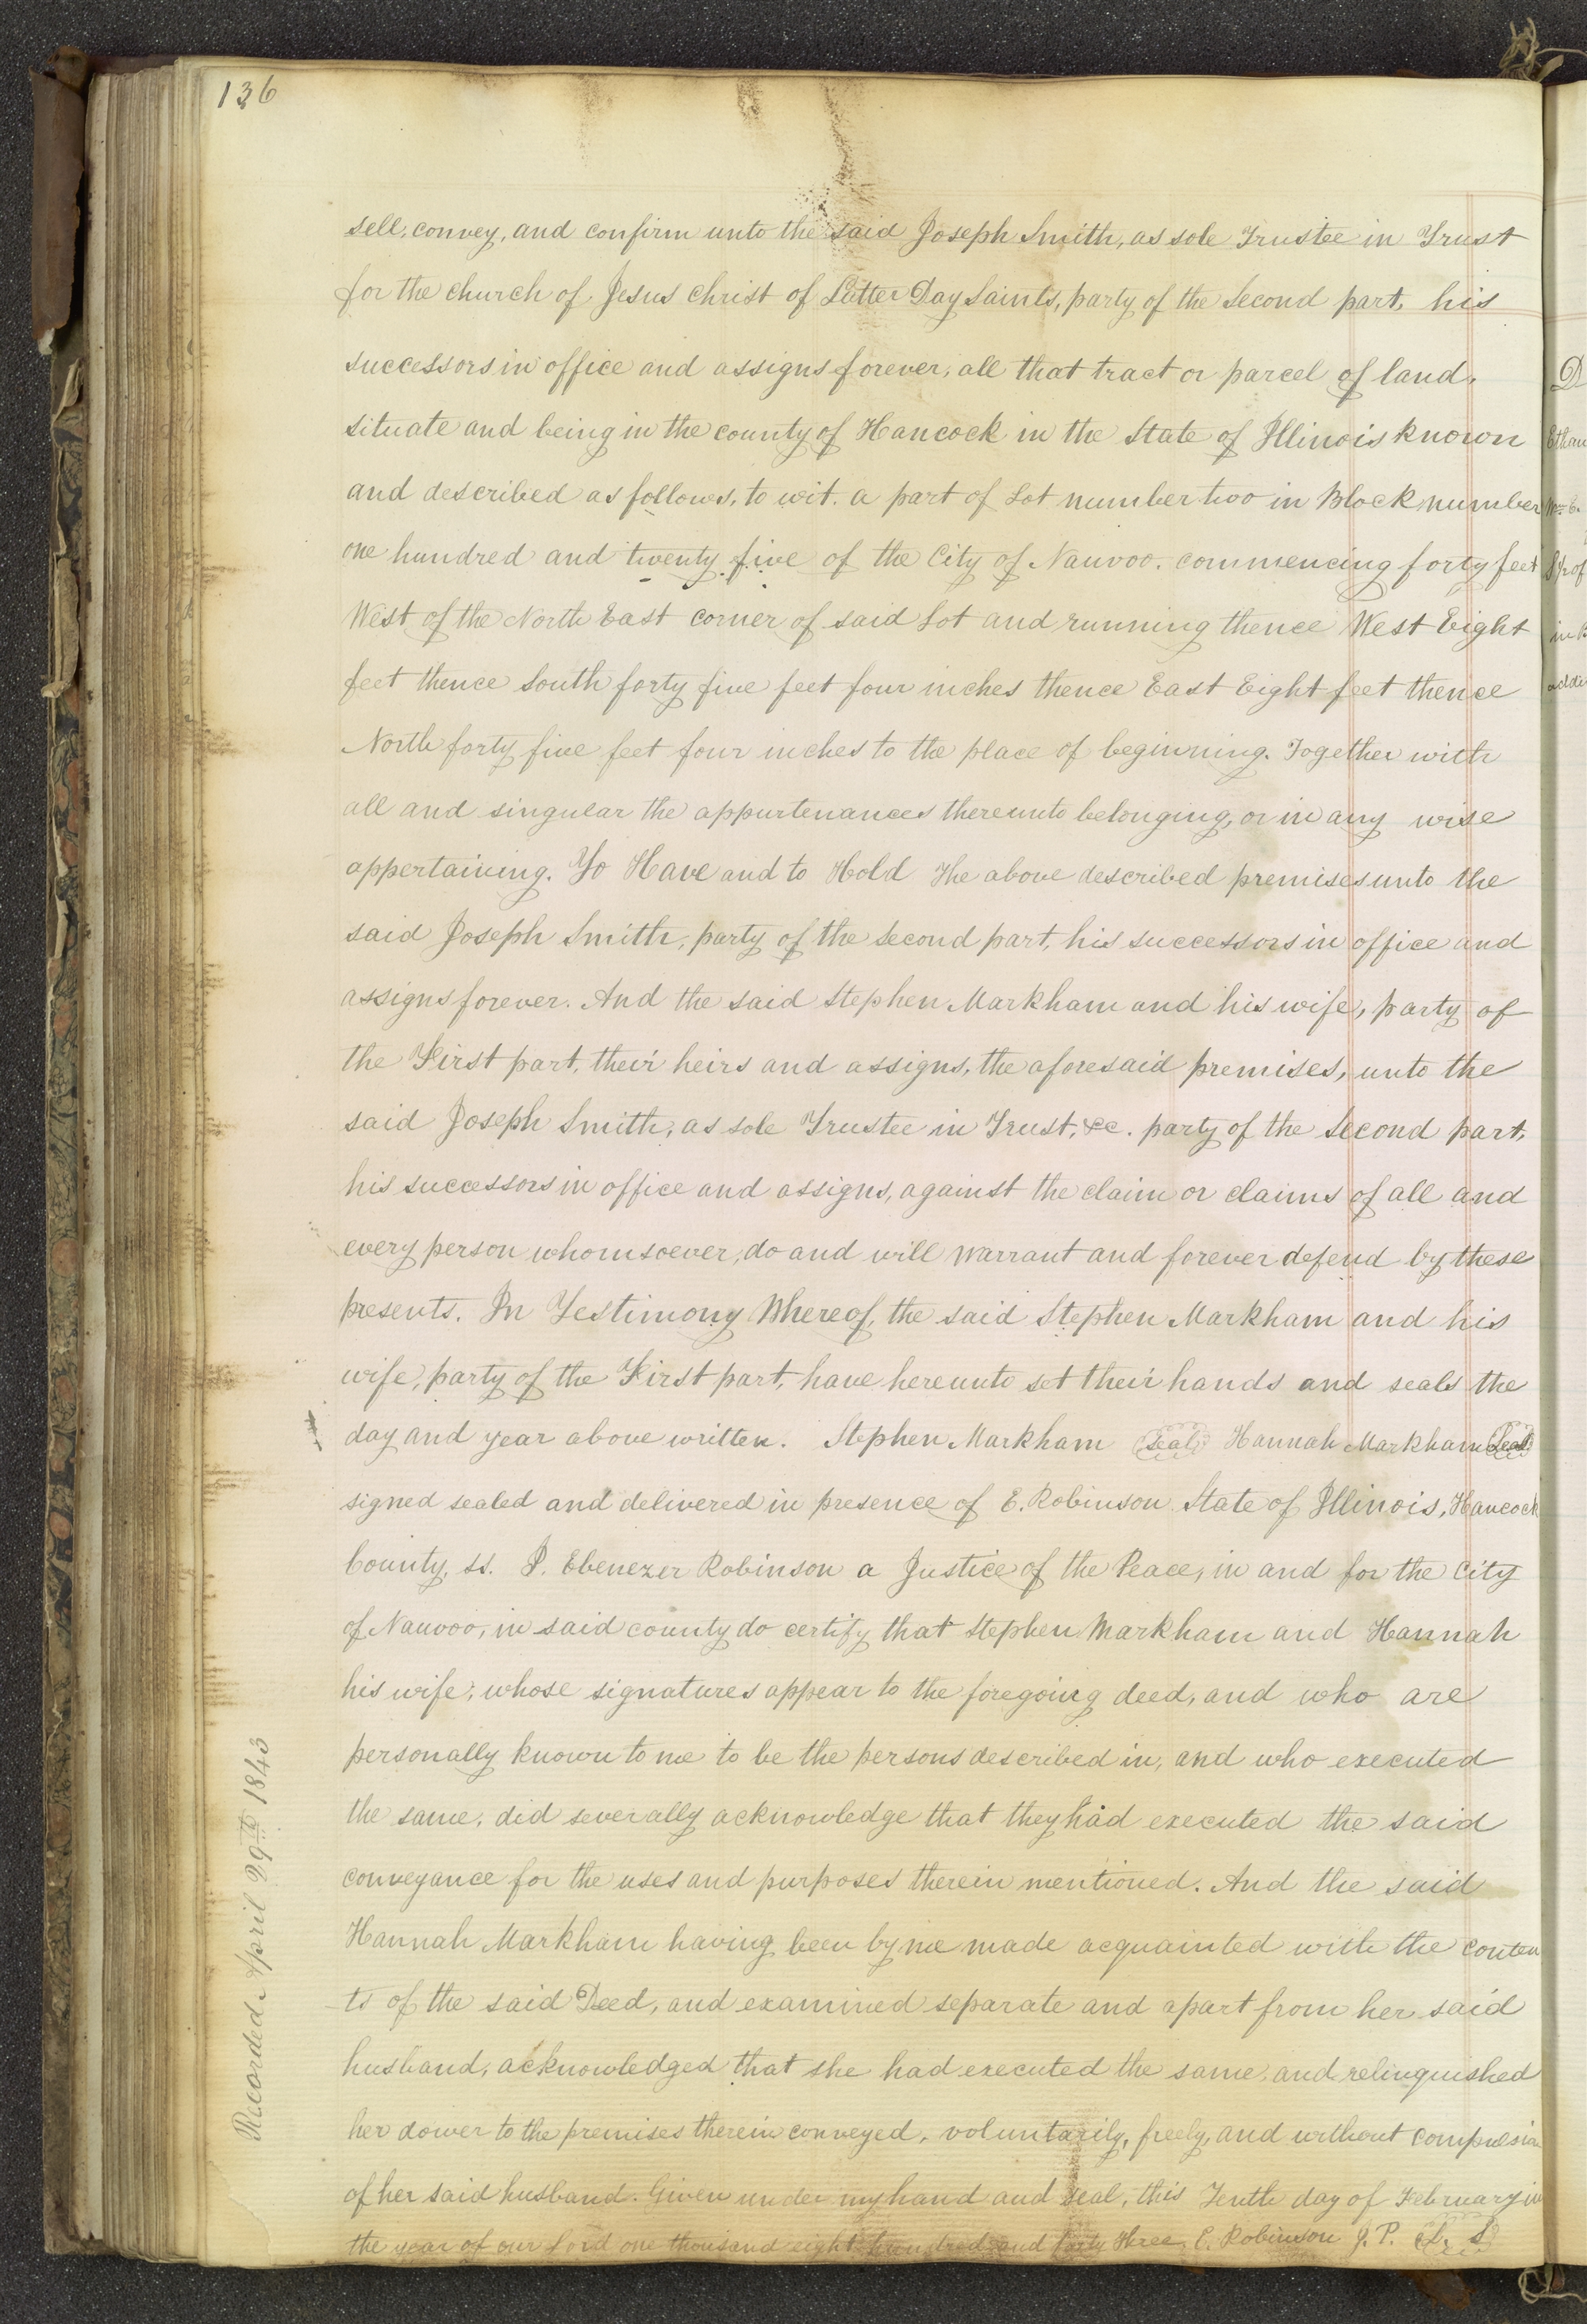 136
sell, convey, and confirm unto the said Joseph Smith, as sole Trustee in Trust
for the church of Jesus Christ of Latter Day Saints, party of the second part, his
successors in office and assigns forever, all that tract or parcel of land,
situate and being in the county of Hancock in the State of Illinois known
and described as follows, to wit. a part of Lot number two in Block number
one hundred and twenty five of the City of Nauvoo. commencing forty feet
West of the North East corner of said Lot and running thence West Eight
feet thence South forty five feet four inches thence East Eight feet thence
North forty five feet four inches to the place of beginning. Together with
all and singular the appurtenances thereunto belonging, or in any wise
appertaining. To Have and to Hold The above described premises unto the
said Joseph Smith, party of the second part, his successors in office and
assigns forever. And the said Stephen Markham and his wife, party of
the First part, their heirs and assigns, the aforesaid premises, unto the
said Joseph Smith, as sole Trustee in Trust, &c. party of the second part,
his successors in office and assigns, against the claim or claims of all and
every person whomsoever, do and will warrant and forever defend by these
presents. In Testimony Whereof, the said Stephen Markham and his
wife, party of the First part, have hereunto set their hands and seals the
day and year above written. Stephen Markham Seal Hannah Markham Seal
signed sealed and delivered in presence of E. Robinson State of Illinois, Hancock
County, ss. I. Ebenezer Robinson a Justice of the Peace, in and for the City
of Nauvoo, in said county do certify that Stephen Markham and Hannah
his wife, whose signatures appear to the foregoing deed, and who are
personally known to me to be the persons described in, and who executed
the same, did severally acknowledge that they had executed the said
conveyance for the uses and purposes therein mentioned. And the said
Hannah Markham having been by me made acquainted with the conten
ts of the said Deed, and examined separate and apart from her said
husband, acknowledged that she had executed the same, and relinquished
her dower to the premises therein conveyed, voluntarily, freely, and without
of her said husband. Given under my hand and seal, this Tenth day of February in
the year of our Lord one thousand eight hundred and forty Three. E. Robinson J. P. L. S
Recorded April 29th 1843